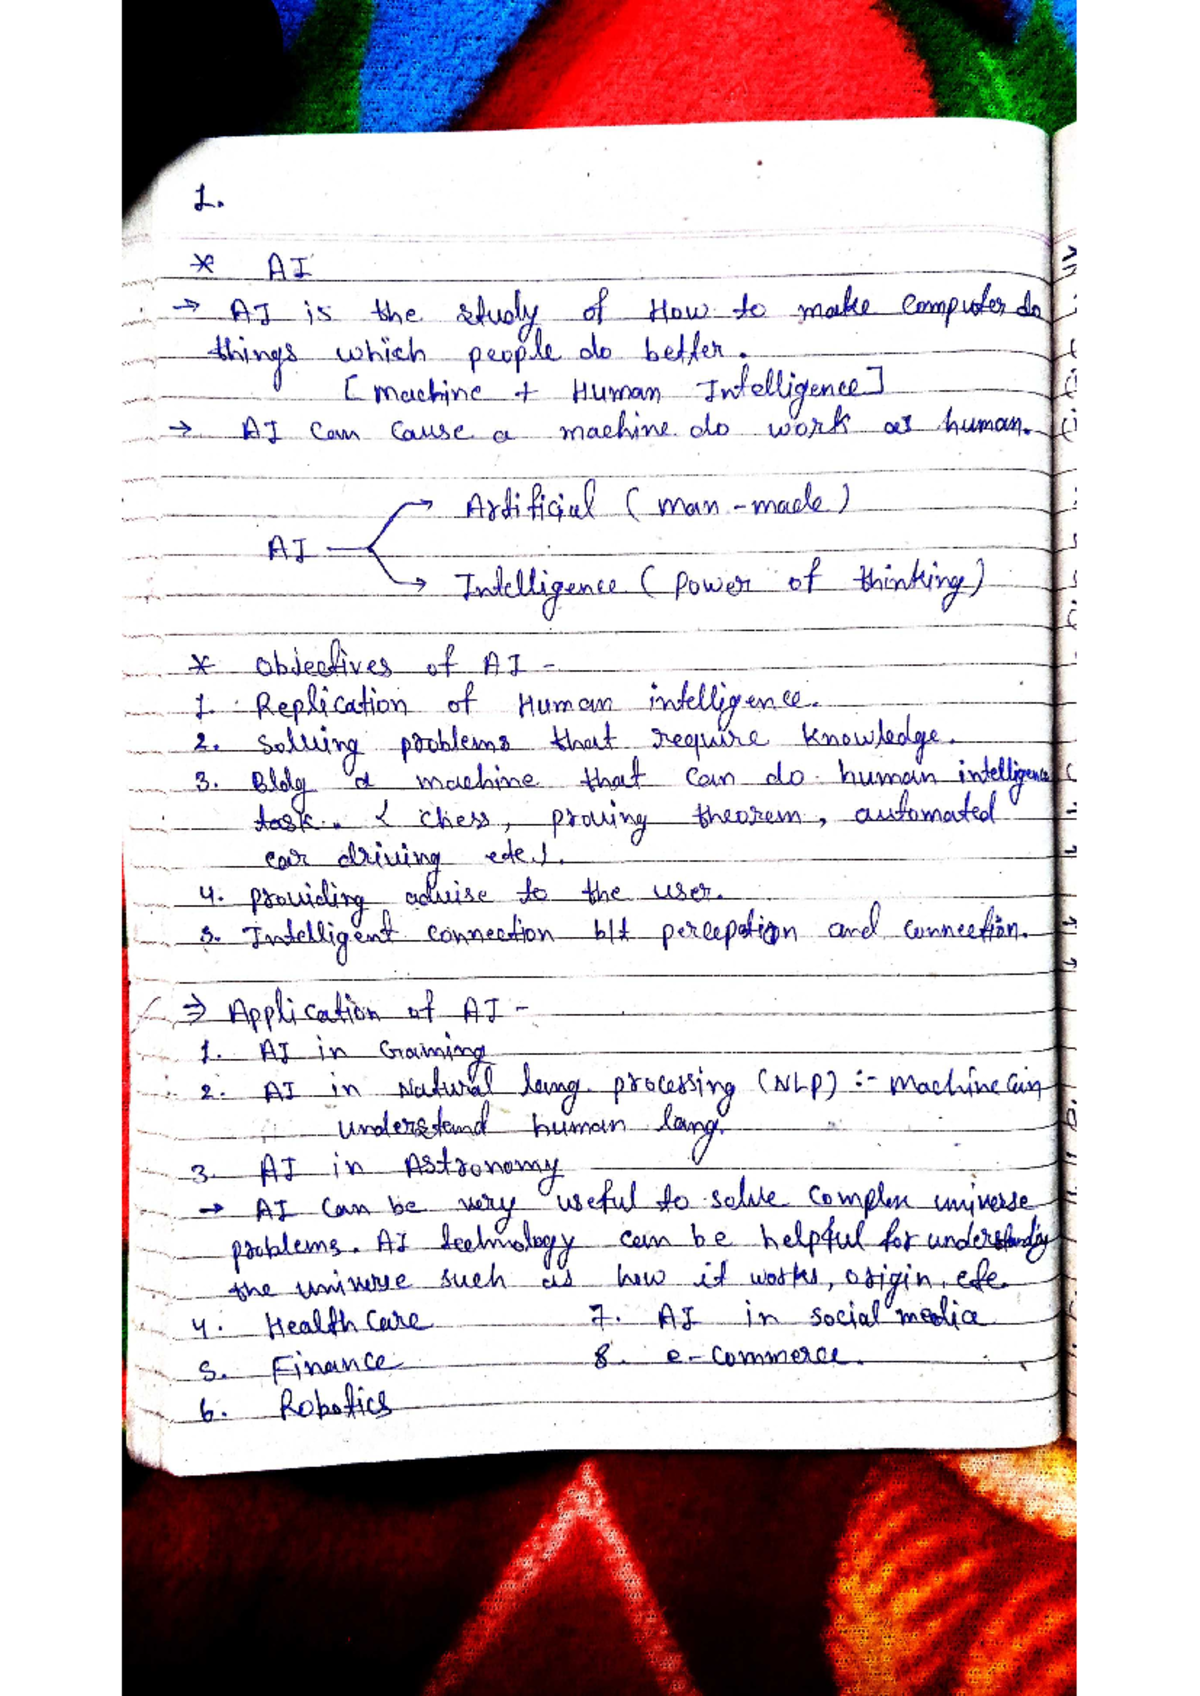 1.
* AI
→ AI is the study of How to make Computer do
things which people do better.
[machine + Human Intelligence]
→ AI Can Cause a machine do work as human.
Artificial (man-made)
AI
Intelligence (Power of thinking)
* Objectives of AI -
1. Replication of Human intelligence.
2. Solving problems that require knowledge.
3. Bldg a machine that can do human intelligence
task. { chess, proving theorem, automated
car driving etc.}.
4. providing advise to the user.
5. Intelligent connection b/t perception and connection.
⇒ Application of AI -
1. AI in Gaming
2. AI in Natural lang. processing (NLP) :- Machine Can
understand human lang.
3. AI in Astronomy
→ AI Can be very useful to solve Complex universe
problems. AI technology can be helpful for understanding
the universe such as how it works, origin, etc.
4. Health Care 7. AI in social media
5. Finance 8. e-commerce.
6. Robotics